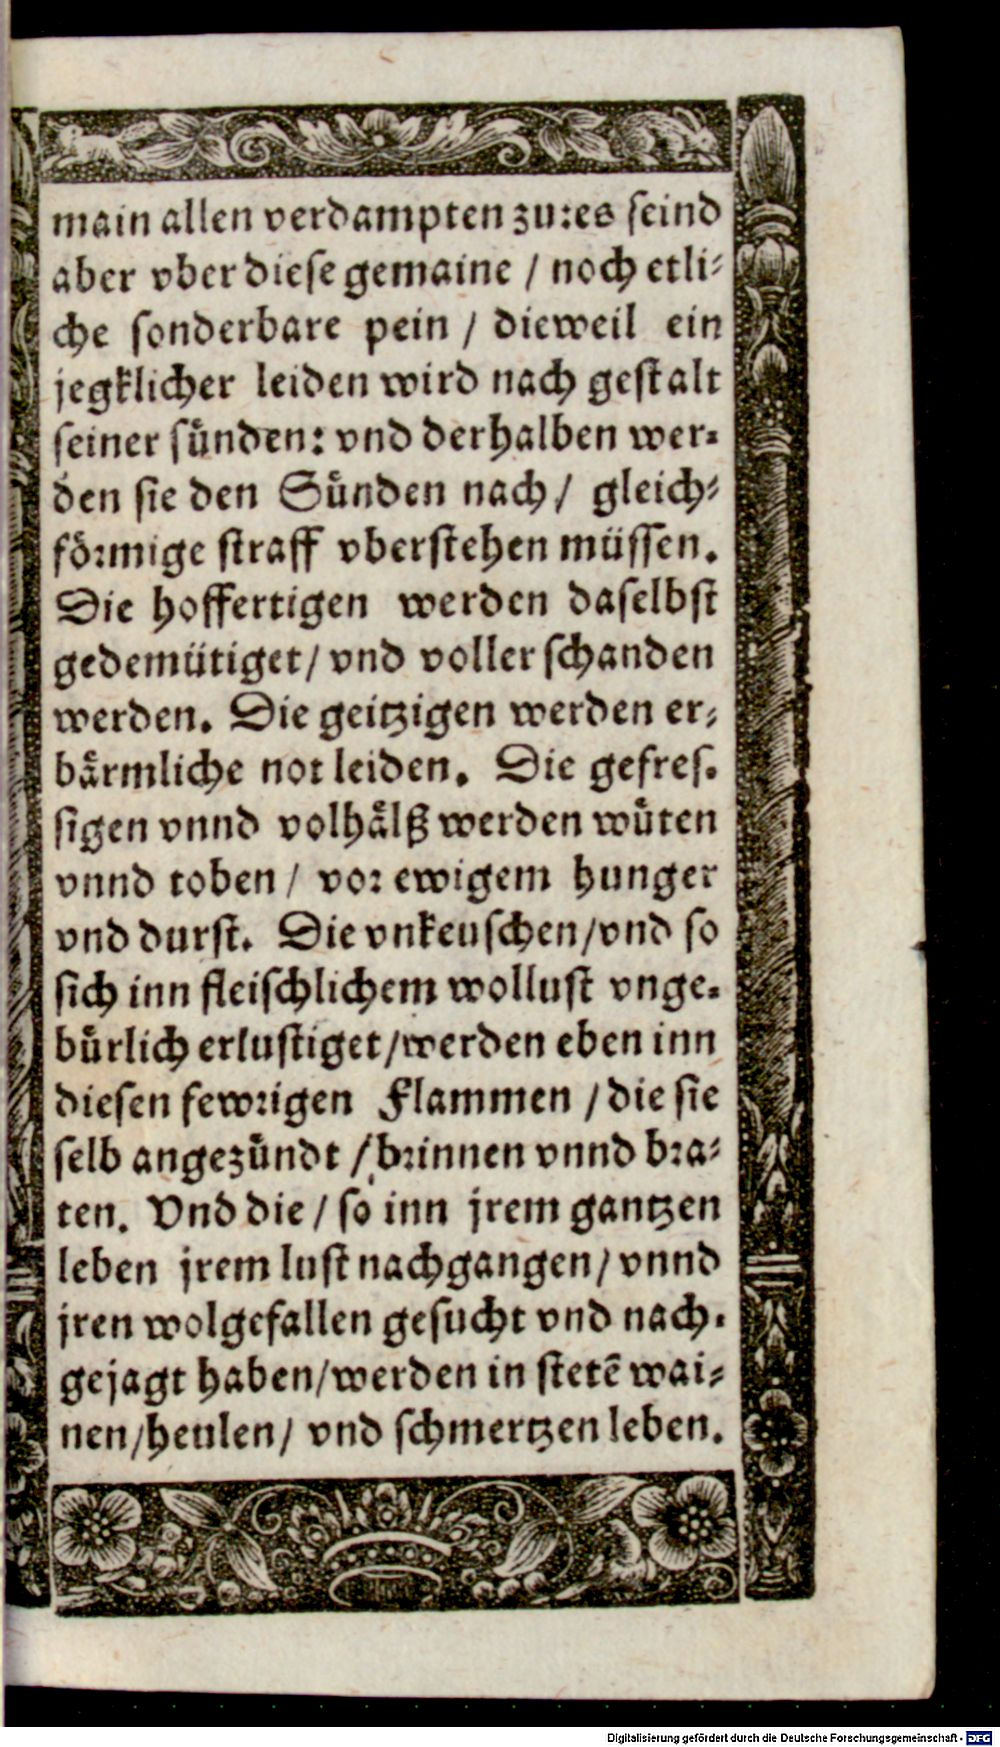 main allen verdampten zu: es seind
aber vber diese gemaine / noch etli-
che sonderbare pein / dieweil ein
jegklicher leiden wird nach gestalt
seiner sünden: vnd derhalben wer-
den sie den Sünden nach / gleich-
förmige straff vberstehen müssen.
Die hoffertigen werden daselbst
gedemütiget / vnd voller schanden
werden. Die geitzigen werden er-
bärmliche not leiden. Die gefres-
sigen vnnd volhälß werden wüten
vnnd toben / vor ewigem hunger
vnd durst. Die vnkeuschen / vnd so
sich inn fleischlichem wollust vnge-
bürlich erlustiget / werden eben inn
diesen fewrigen Flammen / die sie
selb angezündt / brinnen vnnd bra-
ten. Vnd die / so inn jrem gantzen
leben jrem lust nachgangen / vnnd
jren wolgefallen gesucht vnd nach-
gejagt haben / werden in stetē wai-
nen / heulen / vnd schmertzen leben.
Digitalisierung gefördert durch die Deutsche Forschungsgemeinschaft - DFG